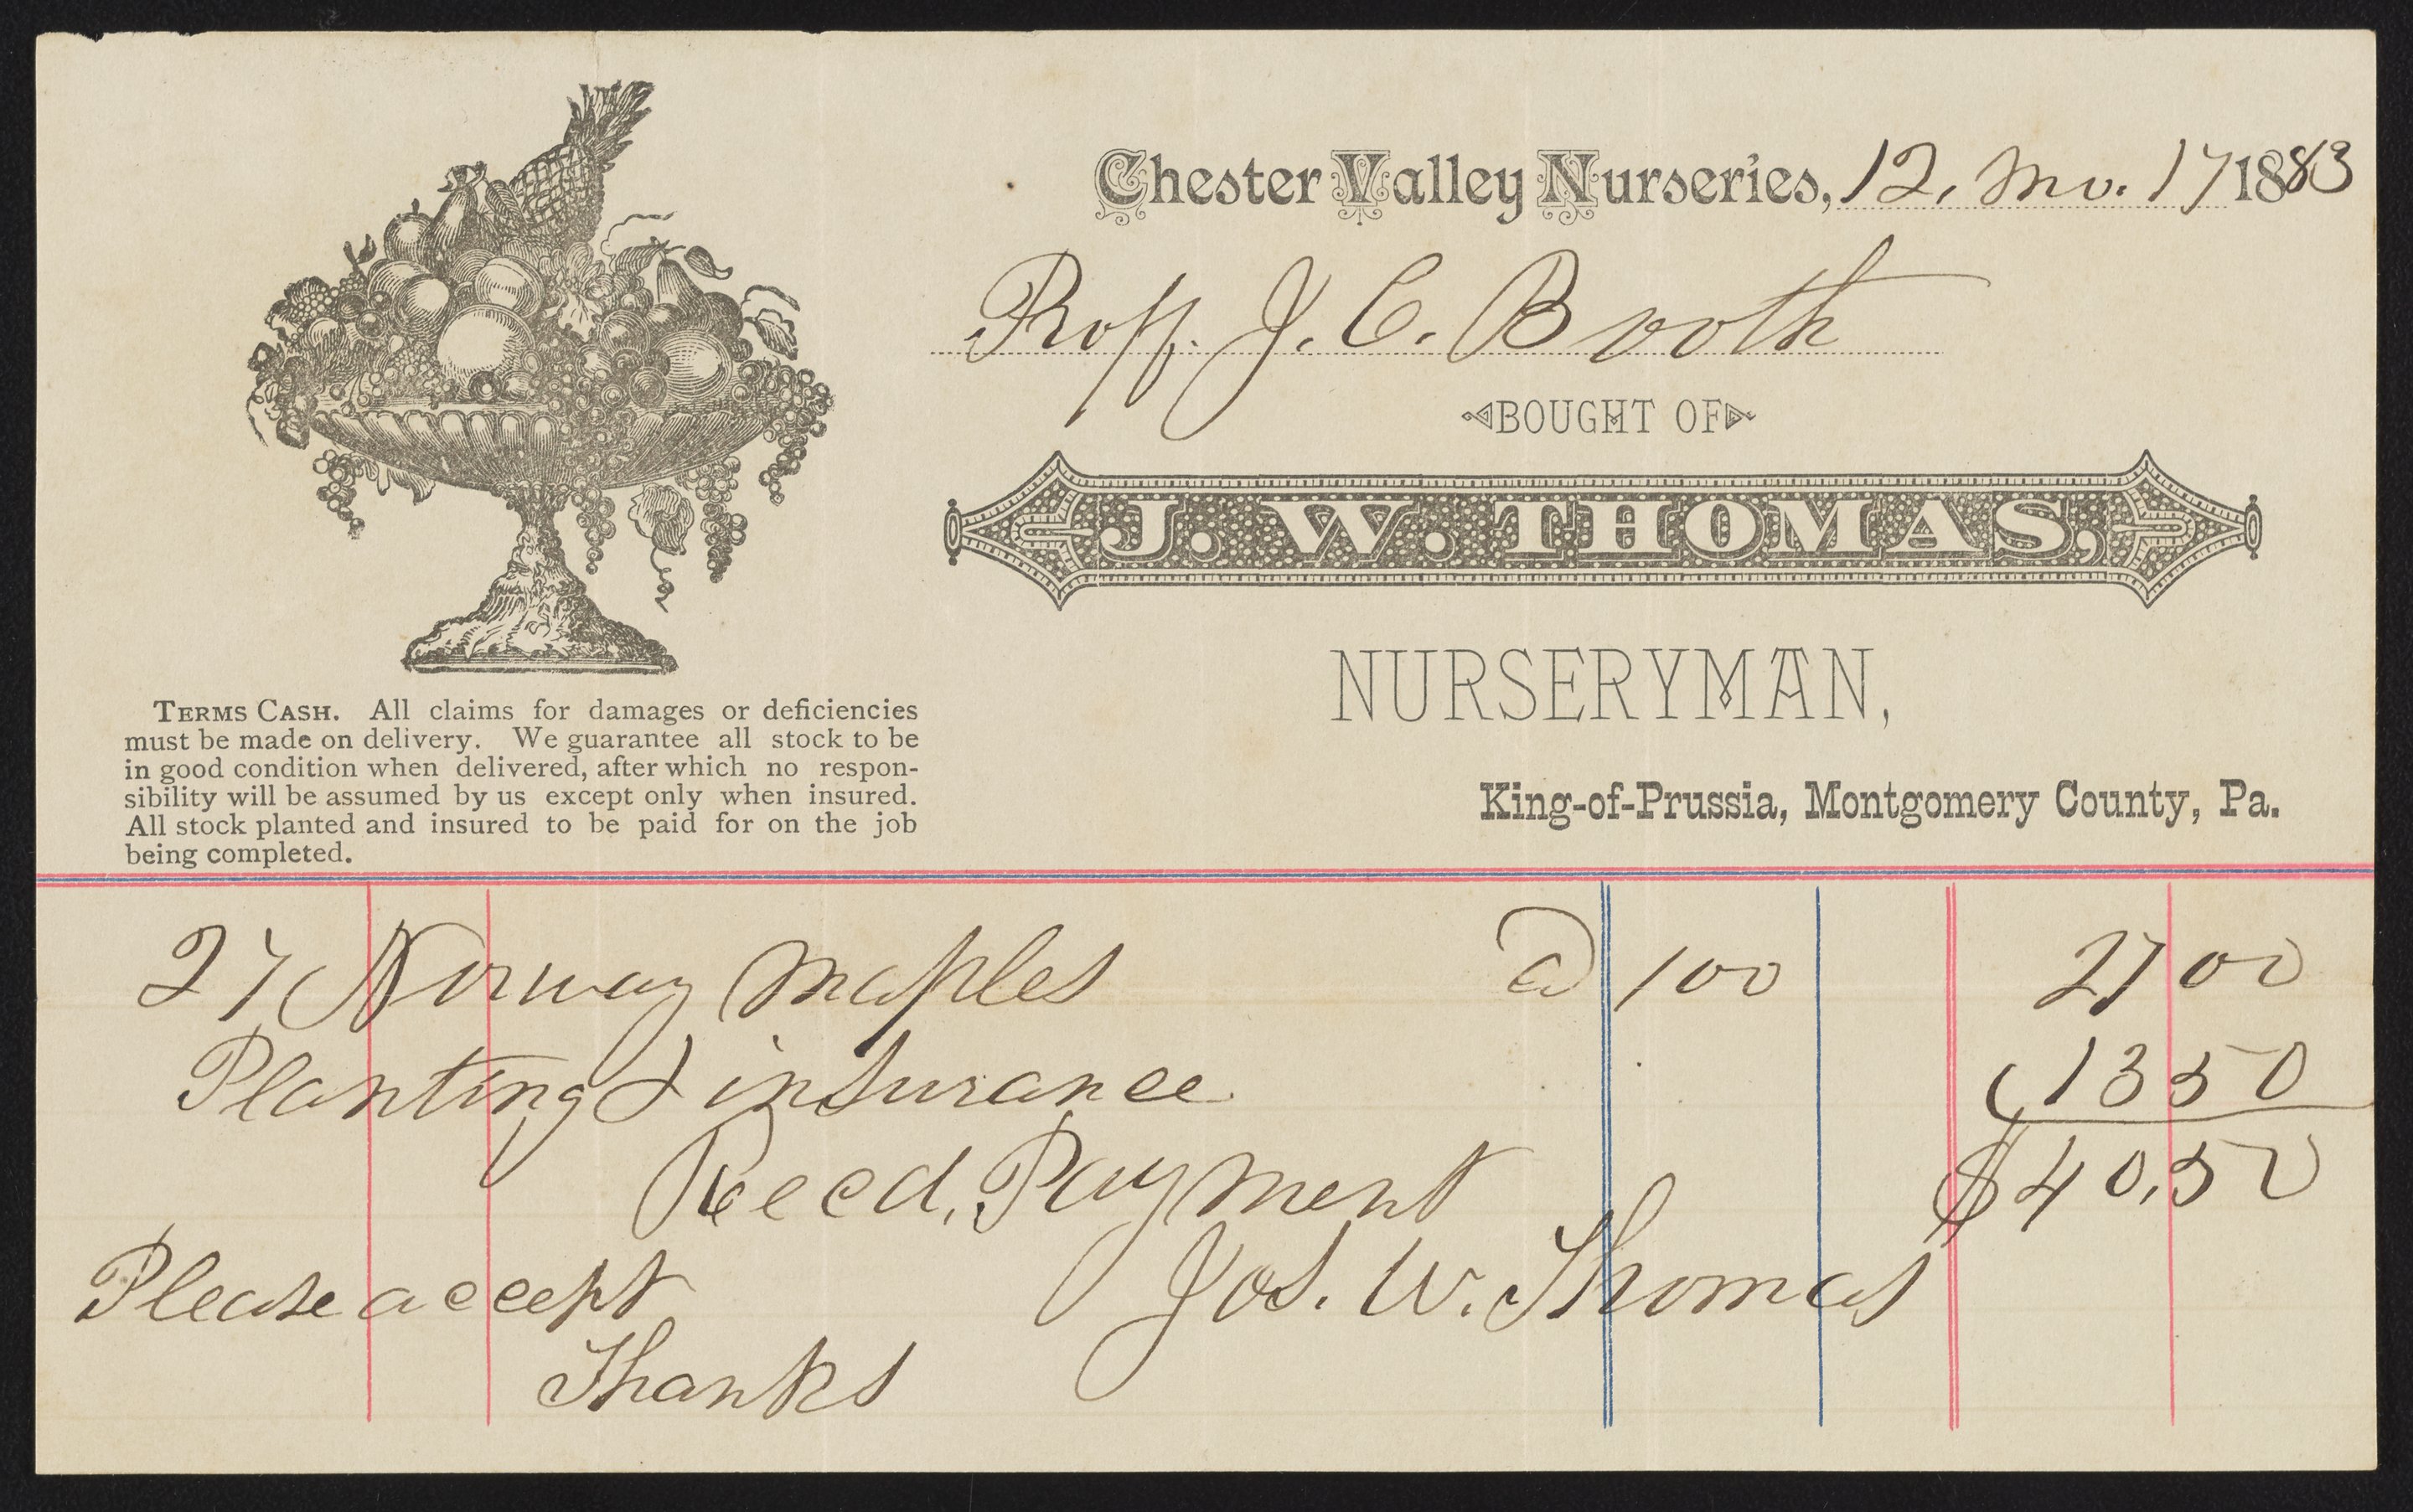 Chester Valley Nurseries, 12. Mo. 17 1883
Proff. J. C. Booth
BOUGHT OF
J. W. THOMAS,
NURSERYMAN,
King-of-Prussia, Montgomery County, Pa.
TERMS CASH. All claims for damages or deficiencies
must be made on delivery. We guarantee all stock to be
in good condition when delivered, after which no respon-
sibility will be assumed by us except only when insured.
All stock planted and insured to be paid for on the job
being completed.
27 Norway Maples @ 100 27 00
Planting & insurance 13 50
Recd, Payment $40.50
Please accept Jos. W. Thomas
Thanks